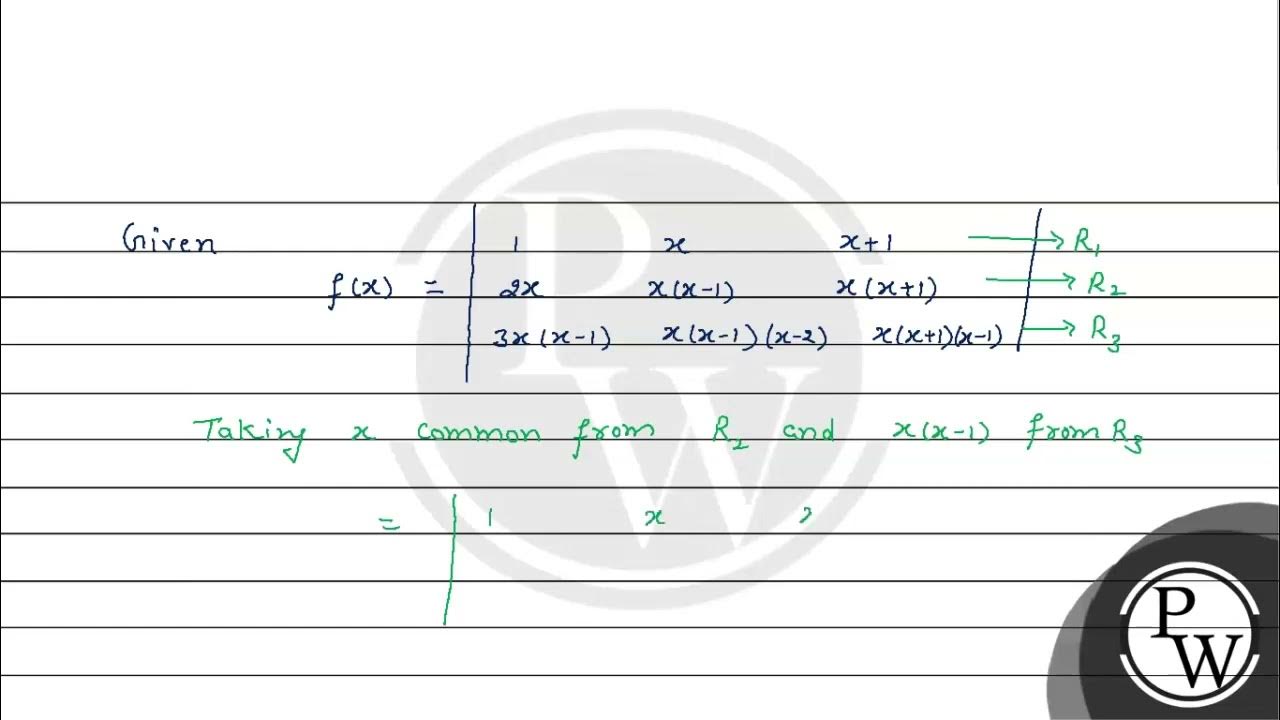 Given
1 x x+1 → R₁
f(x) = 2x x(x-1) x(x+1) → R₂
3x(x-1) x(x-1)(x-2) x(x+1)(x-1) → R₃
Taking x common from R₂ and x(x-1) from R₃
= 1 x
P
W
P
W